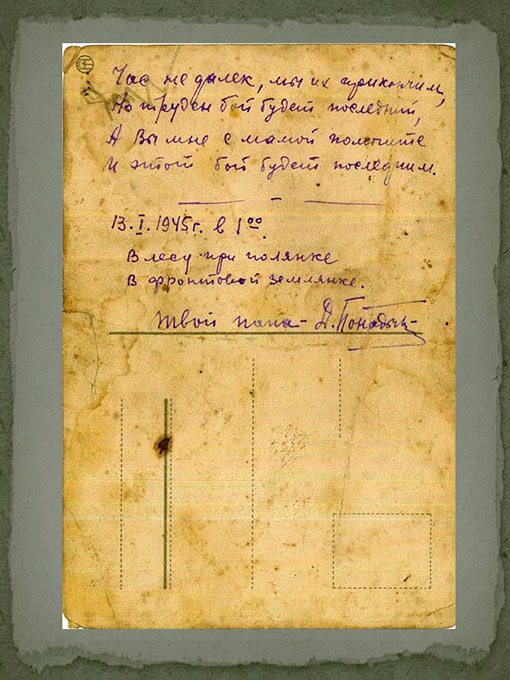 Час не далек, мы их прикончим,
Но труден бой будет последний,
А Вы мне с мамой помогите
И этот бой будет последним.
13.I.1945г. в 1⁰⁰
В лесу при полянке
В фронтовой землянке.
Твой папа - Д.